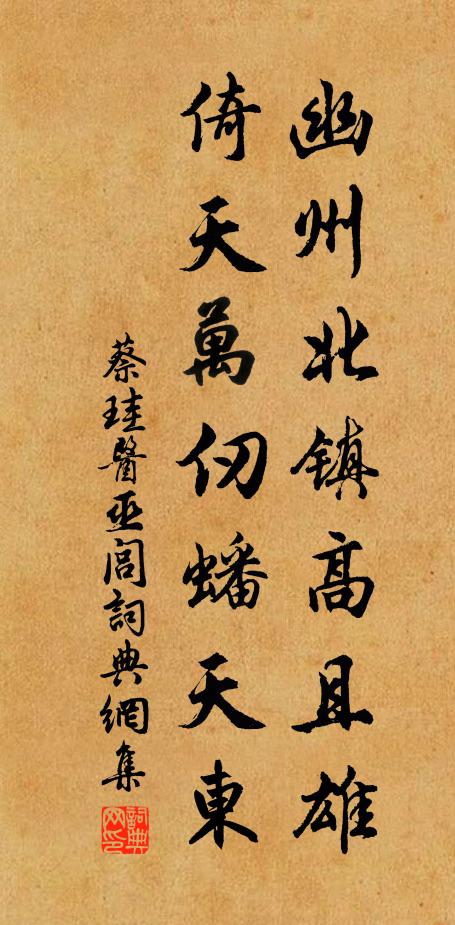 幽州北镇高且雄
倚天萬仞蟠天東
蔡珪醫巫闾詞典網集
詞典网印